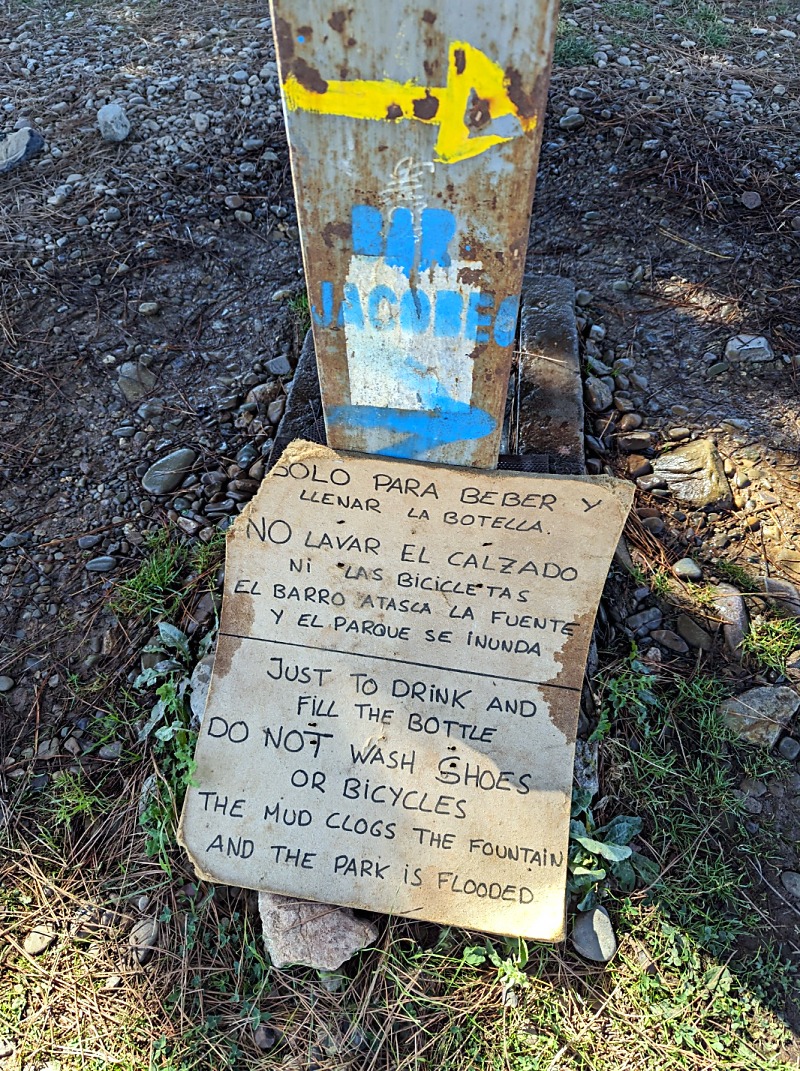 BAR.
JACOBEO
SOLO PARA BEBER Y
LLENAR LA BOTELLA.
NO LAVAR EL CALZADO
NI LAS BICICLETAS
EL BARRO ATASCA LA FUENTE
Y EL PARQUE SE INUNDA
JUST TO DRINK AND
FILL THE BOTTLE
DO NOT WASH SHOES
OR BICYCLES
THE MUD CLOGS THE FOUNTAIN
AND THE PARK IS FLOODED